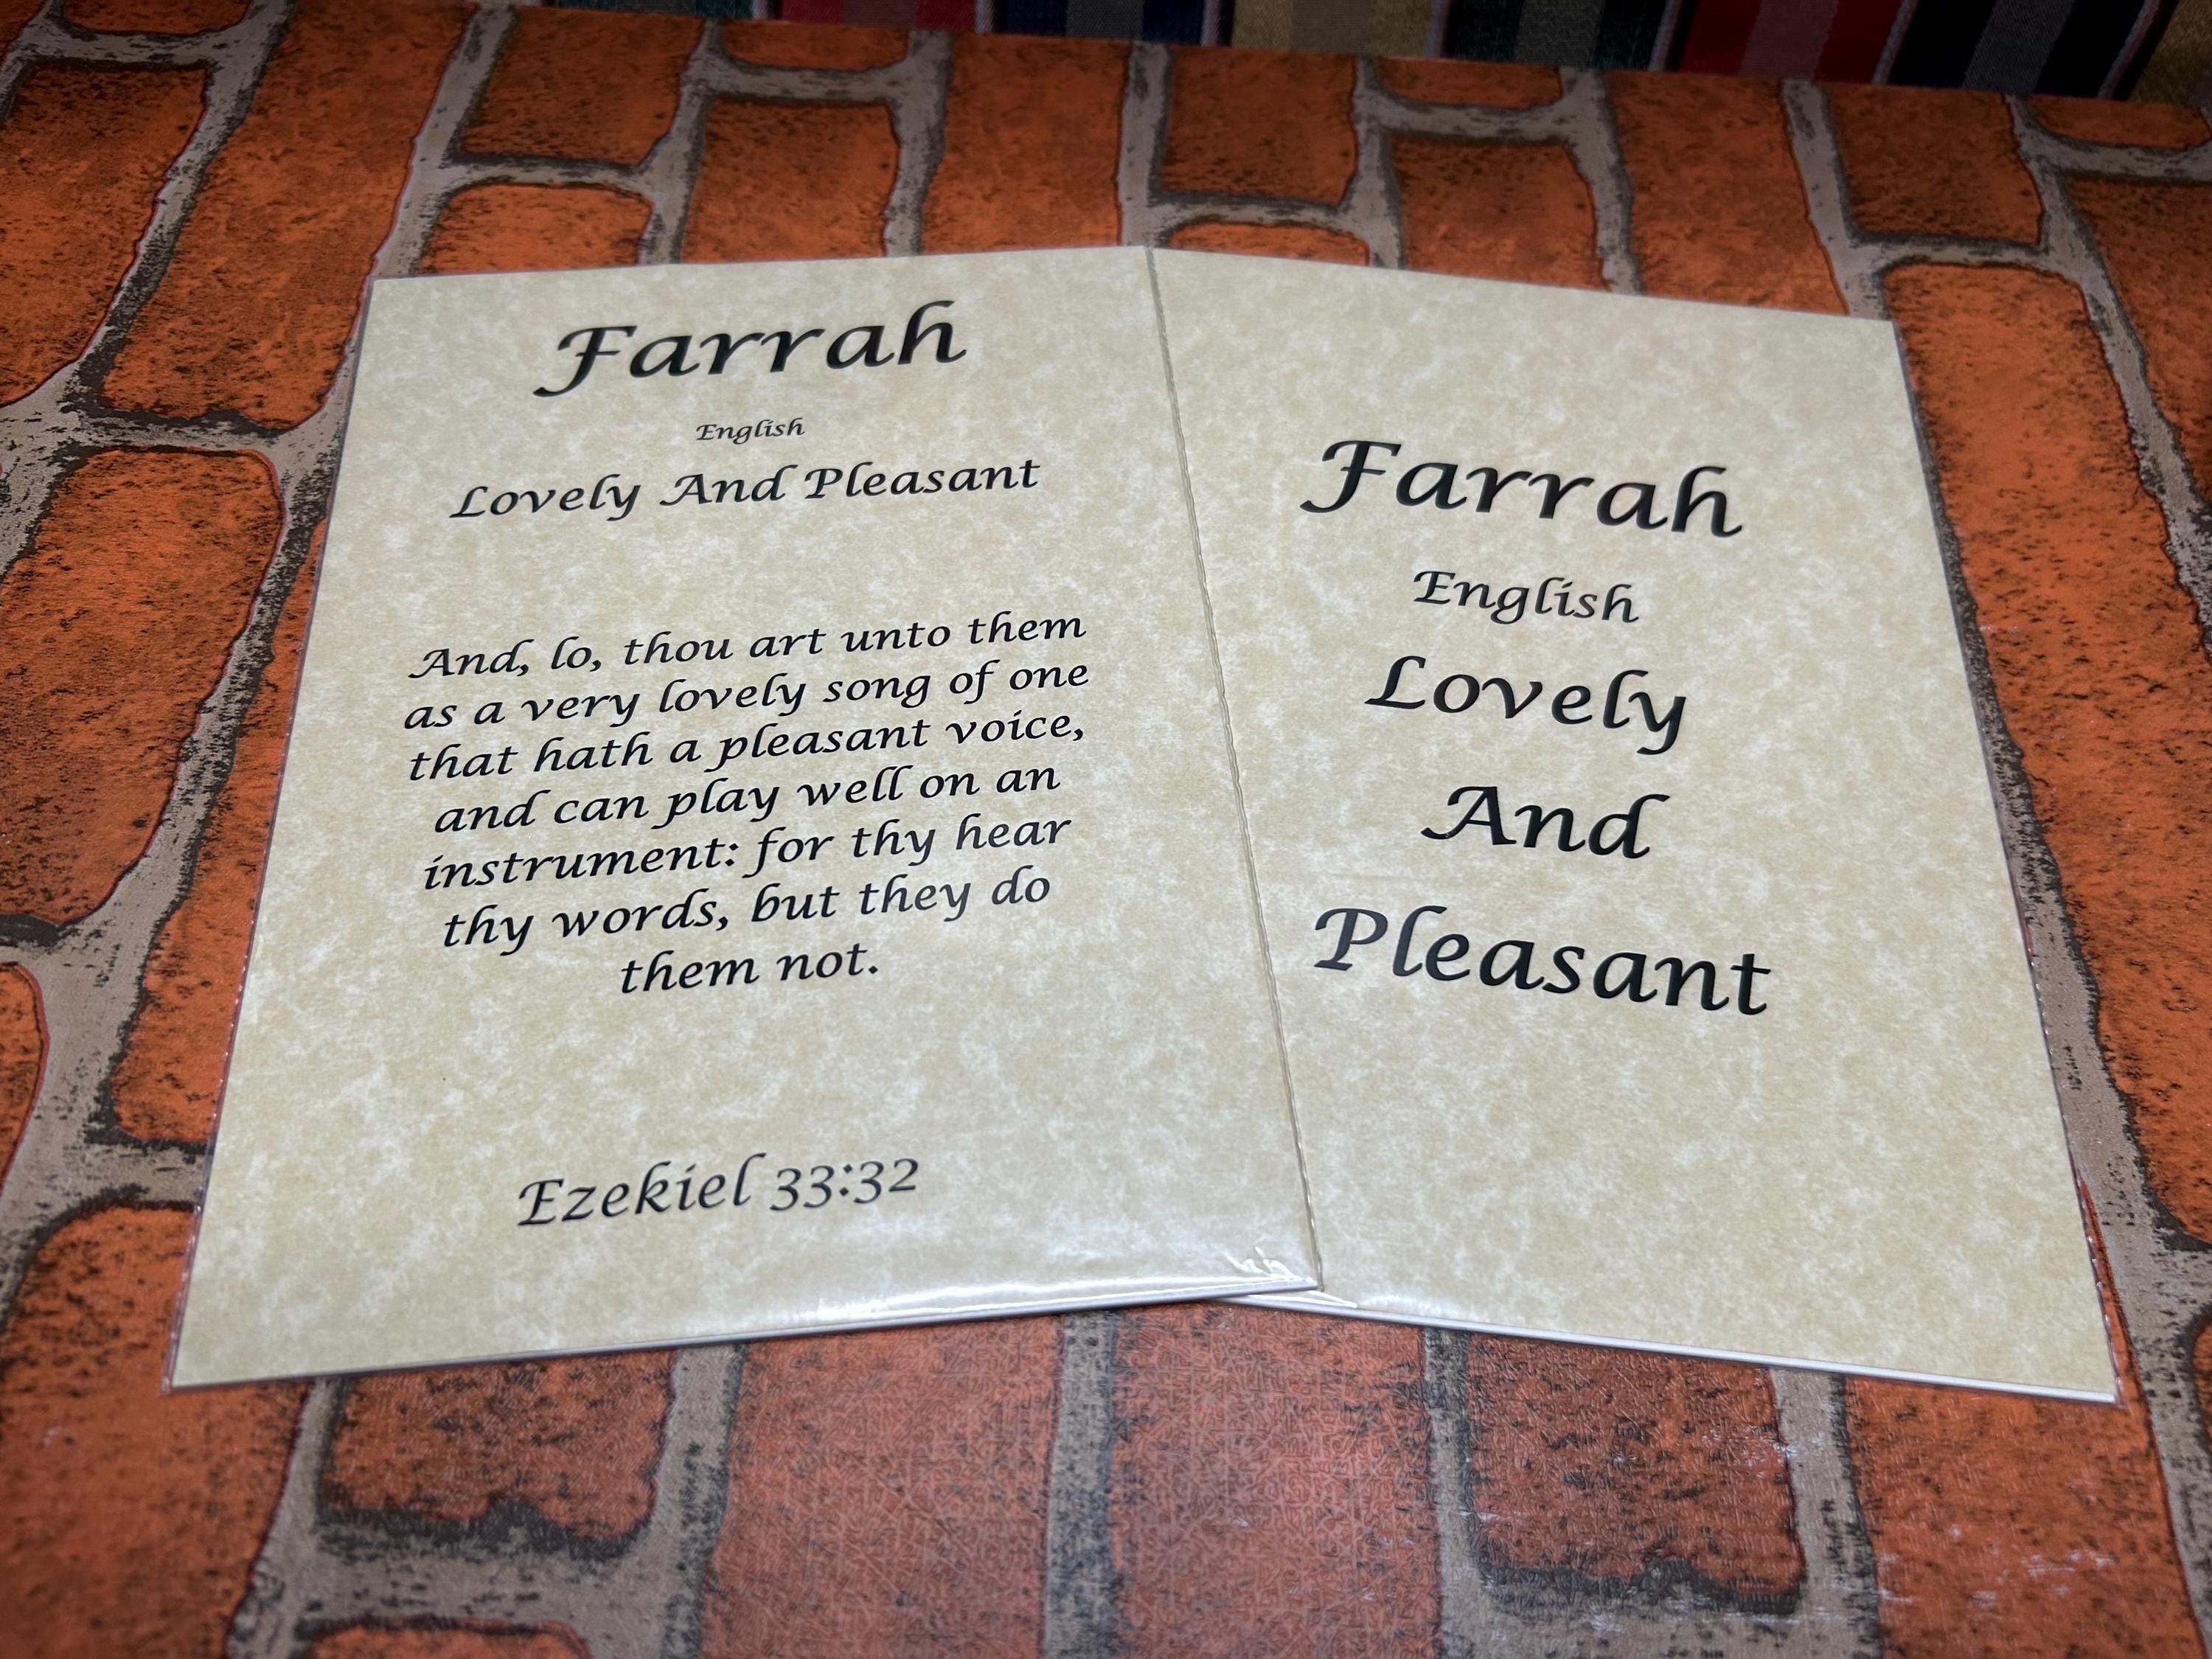 Farrah
English
Lovely And Pleasant
And, lo, thou art unto them
as a very lovely song of one
that hath a pleasant voice,
and can play well on an
instrument: for thy hear
thy words, but they do
them not.
Ezekiel 33:32
Farrah
English
Lovely
And
Pleasant